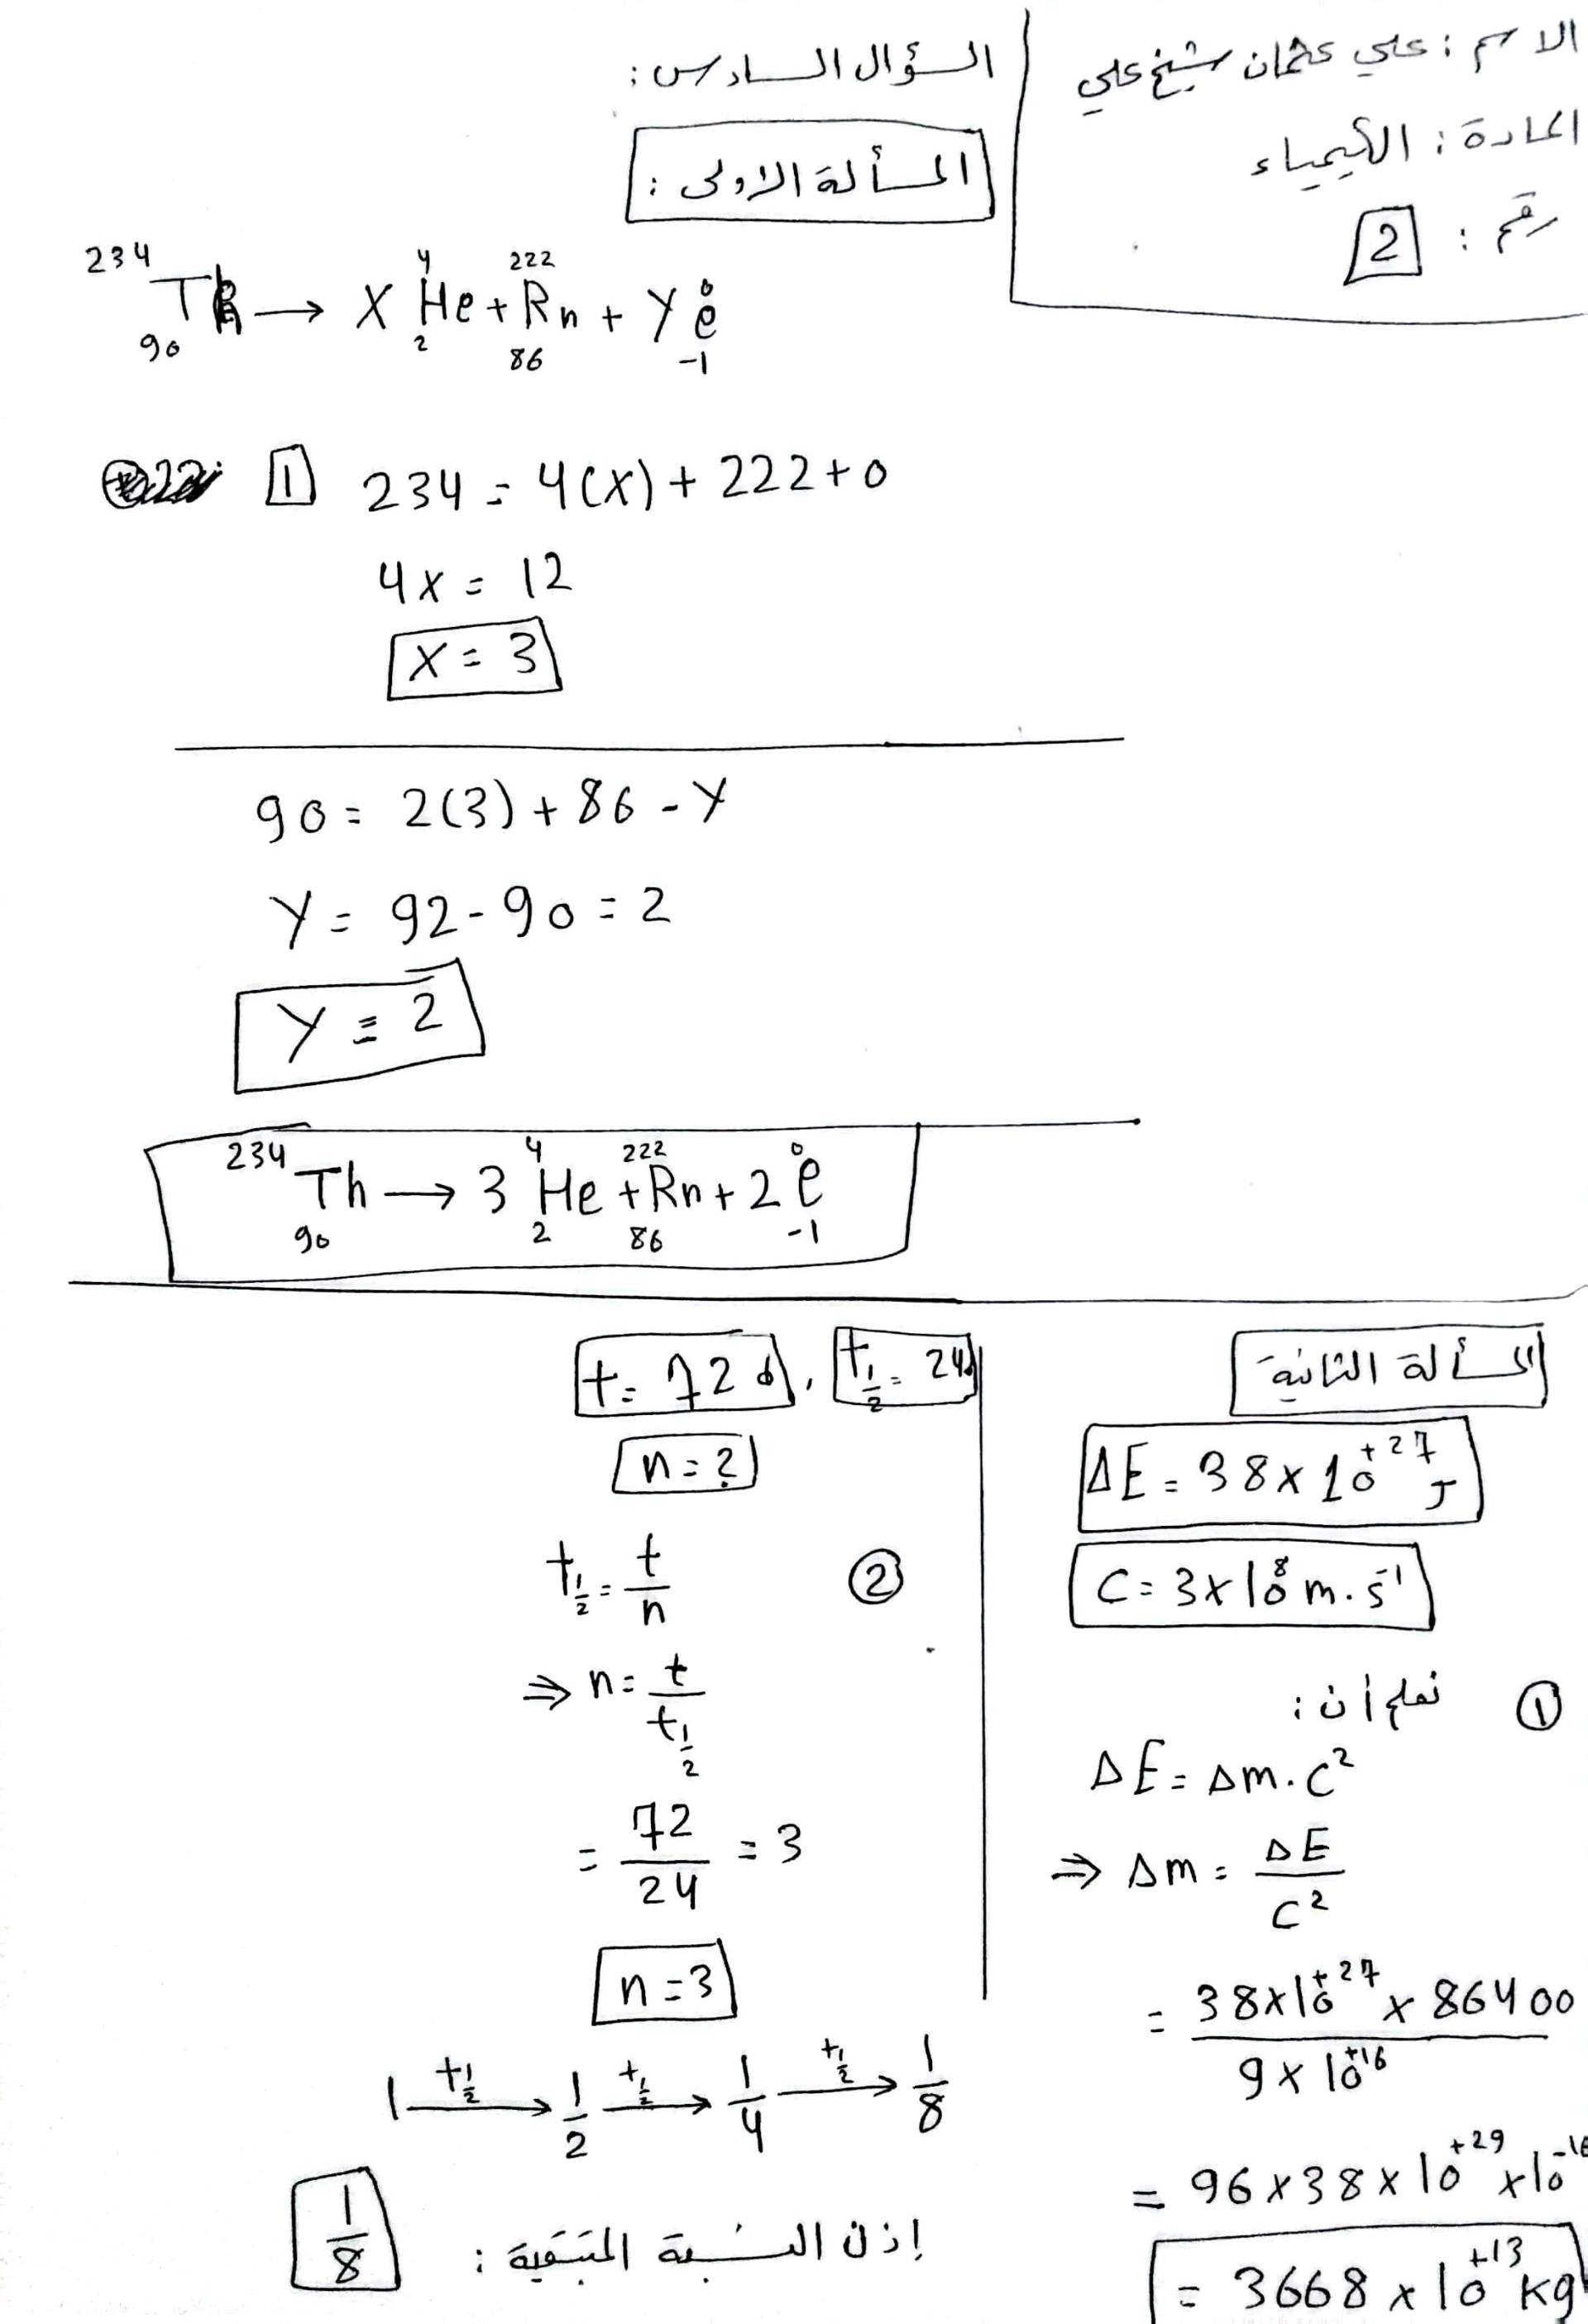 الاسم : علي عثمان شيخ علي
المادة : الكيمياء
رقم : 2
السؤال السادس :
المسألة الاولى :
²³⁴₉₀Th → X ⁴₂He + ²²²₈₆Rn + Y ⁰₋₁e
1 234 = 4(X) + 222 + 0
4X = 12
X = 3
90 = 2(3) + 86 - Y
Y = 92 - 90 = 2
Y = 2
²³⁴₉₀Th → 3 ⁴₂He + ²²²₈₆Rn + 2 ⁰₋₁e
المسألة الثانية
ΔE = 38 × 10⁺²⁷ J
C = 3 × 10⁸ m.s⁻¹
① نعلم أن :
ΔE = Δm . C²
⇒ Δm = ΔE / C²
= 38 × 10⁺²⁷ × 86400 / 9 × 10⁺¹⁶
= 96 × 38 × 10⁺²⁹ × 10⁻¹⁶
= 3668 × 10⁺¹³ kg
t = 72 d , t½ = 24d
n = ?
② t½ = t / n
⇒ n = t / t½
= 72 / 24 = 3
n = 3
1 —t½→ 1/2 —t½→ 1/4 —t½→ 1/8
إذن النسبة المتبقية : 1/8